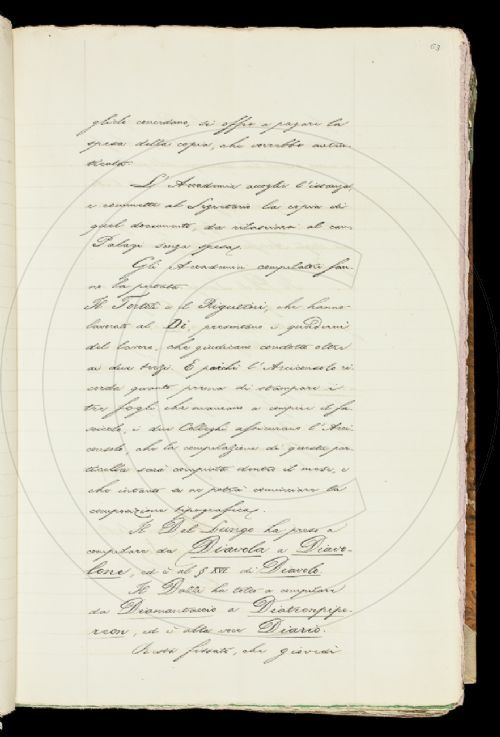 63
gliela concedano, si offre a pagare la
spesa della copia, che vorrebbe auten-
ticata.
L'Accademia accoglie l'istanza
e commette al Segretario la copia di
quel documento, da rilasciarsi al can.
Palagi senza spesa.
Gli Accademici compilatori fan-
no la
Il Tortoli e il Rigutini, che hanno
lavorato al Di, presentano i quaderni
del lavoro, che giudicano condotto oltre
ai due terzi. E poichè l'Arciconsolo ri-
corda quanto prema di stampare i
tre fogli che mancano a compire il fa-
scicolo, i due Colleghi assicurano l'Arci-
consolo, che la compilazione di questa par-
ticella sarà compiuta dentro il mese, e
che intanto se ne potrà cominciare la
composizione tipografica.
Il Del Lungo ha preso a
compilare da Diavola a Diavo-
lone, ed è al § XVI di Diavolo.
Il Dazzi ha tolto a compilare
da Diamantaccio a Diatrionpipe-
reon, ed è alla voce Diario.
Resta fissato, che giovedì